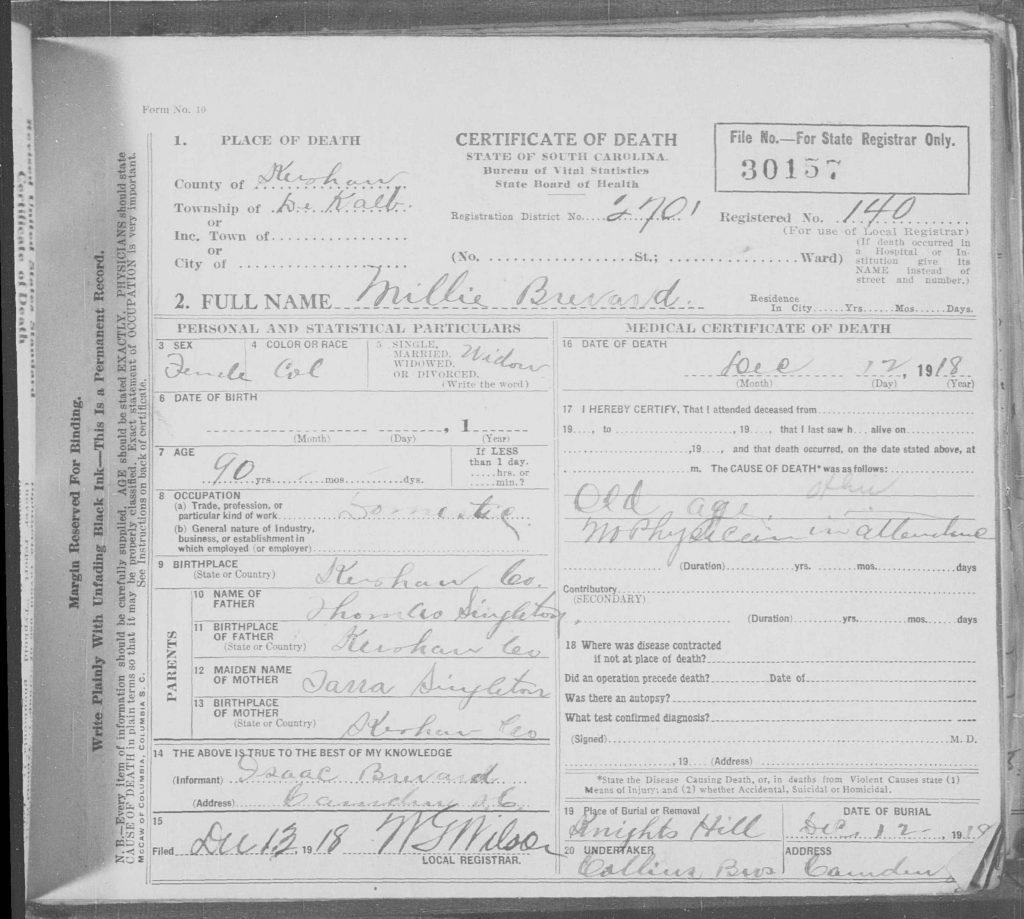 Form No. 10
1. PLACE OF DEATH
County of Kershaw
Township of De Kalb.
or
Inc. Town of
or
City of
CERTIFICATE OF DEATH
STATE OF SOUTH CAROLINA.
Bureau of Vital Statistics
State Board of Health
Registration District No. 2701
(No. St.; Ward)
File No.—For State Registrar Only.
30157
Registered No. 140
(For use of Local Registrar)
(If death occurred in
a Hospital or In-
stitution give its
NAME instead of
street and number.)
2. FULL NAME Millie Brevard.
Residence
In City Yrs. Mos. Days.
PERSONAL AND STATISTICAL PARTICULARS
3 SEX
Female
4 COLOR OR RACE
Col
5 SINGLE,
MARRIED,
WIDOWED,
OR DIVORCED.
(Write the word)
Widow
6 DATE OF BIRTH
, 1
(Month) (Day) (Year)
7 AGE
90 yrs. mos. dys.
If LESS
than 1 day.
hrs. or
min.?
8 OCCUPATION
(a) Trade, profession, or
particular kind of work Domestic
(b) General nature of industry,
business, or establishment in
which employed (or employer)
9 BIRTHPLACE
(State or Country) Kershaw Co.
PARENTS
10 NAME OF
FATHER Thomas Singleton
11 BIRTHPLACE
OF FATHER
(State or Country) Kershaw Co
12 MAIDEN NAME
OF MOTHER Tarra Singleton
13 BIRTHPLACE
OF MOTHER
(State or Country) Kershaw Co
14 THE ABOVE IS TRUE TO THE BEST OF MY KNOWLEDGE
(Informant) Isaac Brevard
(Address) Camden S.C.
15
Filed Dec 13, 1918 W G Wilson
LOCAL REGISTRAR.
MEDICAL CERTIFICATE OF DEATH
16 DATE OF DEATH
Dec 12, 1918
(Month) (Day) (Year)
17 I HEREBY CERTIFY, That I attended deceased from
19 , to , 19 , that I last saw h alive on
,19 , and that death occurred, on the date stated above, at
m. The CAUSE OF DEATH* was as follows:
Old age
no Physician in attendence
(Duration) yrs. mos. days
Contributory
(SECONDARY)
(Duration) yrs. mos. days
18 Where was disease contracted
if not at place of death?
Did an operation precede death? Date of
Was there an autopsy?
What test confirmed diagnosis?
(Signed) M. D.
, 19 (Address)
*State the Disease Causing Death, or, in deaths from Violent Causes state (1)
Means of Injury; and (2) whether Accidental, Suicidal or Homicidal.
19 Place of Burial or Removal
Knights Hill
DATE OF BURIAL
Dec 12 1918
20 UNDERTAKER
Collins Bros
ADDRESS
Camden
Margin Reserved For Binding.
Write Plainly With Unfading Black Ink—This Is a Permanent Record.
N. B.—Every item of information should be carefully supplied. AGE should be stated EXACTLY. PHYSICIANS should state
CAUSE OF DEATH in plain terms so that it may be properly classified. Exact statement of OCCUPATION is very important.
See Instructions on back of certificate.
McCAW OF COLUMBIA, COLUMBIA S. C.
Revised United States Standard
Certificate of Death